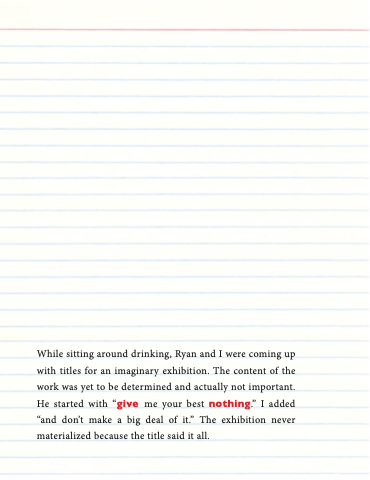 While sitting around drinking, Ryan and I were coming up
with titles for an imaginary exhibition. The content of the
work was yet to be determined and actually not important.
He started with “give me your best nothing.” I added
“and don’t make a big deal of it.” The exhibition never
materialized because the title said it all.